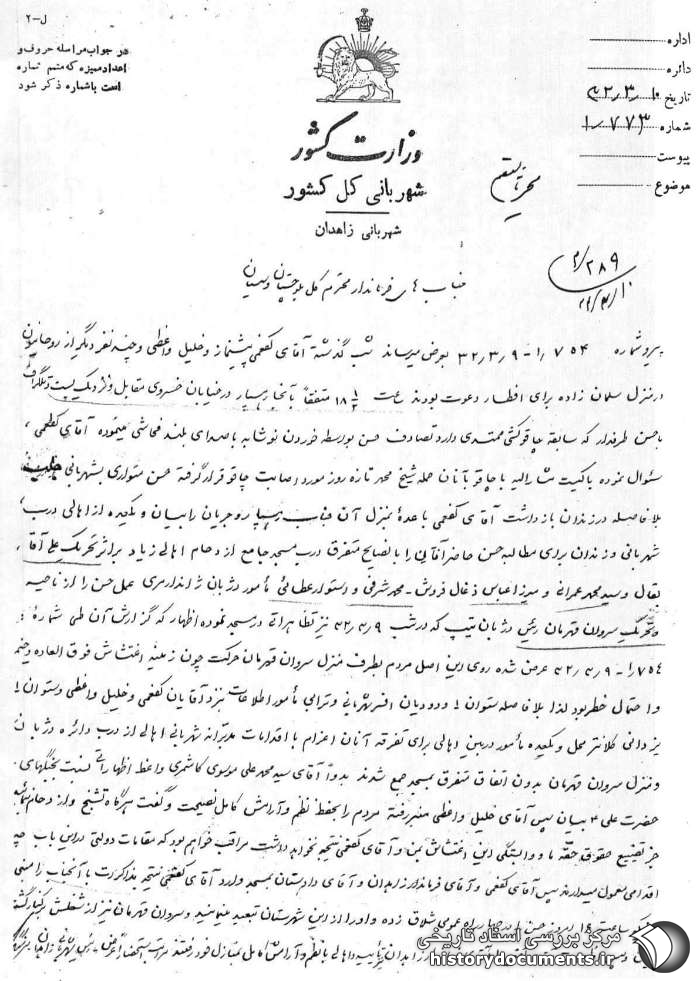 ل-۲
در جواب مراسله حروف و
اعداد ممیزه که متمم نماره
است باشماره ذکر شود
اداره
دائره
تاریخ ۳۲٫۳٫۱۰
شماره ۱٫۷۷۳
پیوست
موضوع
وزارت کشور
شهربانی کل کشور
شهربانی زاهدان
محرمانه مستقیم
۲۸۹
جناب آقای فرماندار محترم کل بلوچستان و سیستان
پیرو شماره ۱٫۷۵۴ - ۳۲٫۳٫۹ بعرض میرساند شب گذشته آقای کفعمی پیشنماز و خلیل واعظی و چند نفر دیگر از روحانیون
در منزل سلمان زاده برای افطار دعوت بودند ساعت ۱۸ ۱/۲ متفقاً در خیابان خسروی مقابل و نزدیک پست و تلگراف
با حسن طرفدار که سابقه چاقوکشی ممتدی دارد تصادف حسن بواسطه خوردن نوشابه با صدای بلند فحاشی مینموده آقای کفعمی
سئوال نموده با کیست مشارالیه با چاقو بآنان حمله شیخ محمد تازه روز مورد اصابت چاقو قرار گرفته حسن متواری بشهربانی
بلافاصله در زندان بازداشت آقای کفعمی با عده بمنزل آن جناب رهسپار و جریان را بیان و یکعده از اهالی درب
شهربانی و زندان برای مطالبه حسن حاضر آقایان را با نصایح متفرق درب مسجد جامع ازدحام اهالی زیاد بر اثر تحریک علی آقا
بقال و سید محمد عمرانی و میرزا عباس ذغال فروش - محمد شرفی و دستوار عطائی مأمور دژبان ژاندارمری عمل حسن را از ناحیه
و تحریک سروان قهرمان رئیس دژبان تیپ که در شب ۳۲٫۳٫۹ نیز تظاهراتی در مسجد نموده اظهار که گزارش آن طی شماره
۱٫۷۵۴ - ۳۲٫۳٫۹ عرض شده روی این اصل مردم بطرف منزل سروان قهرمان حرکت چون زمینه اغتشاش فوق العاده وخیم
و احتمال خطر بود لذا بلافاصله ستوان ۱ ودودیان افسر شهربانی و ترابی مأمور اطلاعات نزد آقایان کفعمی و خلیل واعظی و ستوان ۱
یزدانی کلانتر محل و یکعده مأمور در بین اهالی برای تفرقه آنان اعزام با اقدامات مدبرانه شهربانی اهالی از درب دائره دژبان
و منزل سروان قهرمان بدون اتفاق متفرق بمسجد جمع شدند بدواً آقای سید محمد علی موسوی کاشمری واعظ اظهاراتی نسبت بجنگهای
حضرت علی ع بیان سپس آقای خلیل واعظی منبر رفته مردم را بحفظ نظم و آرامش کامل نصیحت و گفت هرگاه تشنج و ازدحام شود
جز تضییع حقوق حقه ما و وابستگی این اغتشاش بمن و آقای کفعمی نتیجه نخواهد داشت مراقب خواهم بود که مقامات دولتی در این باب چه
اقدامی معمول میدارند سپس آقای کفعمی و آقای فرماندار زاهدان و آقای دادستان بمسجد وارد آقای کفعمی نتیجه مذاکرات با آنجناب را مبنی
شلاق زده و او را از این شهرستان تبعید مینمایند و سروان قهرمان نیز از شغلش برکنار گشته
اهالی با نظم و آرامش کامل بمنازل خود رفتند
مرکز بررسی اسناد تاریخی
historydocuments.ir